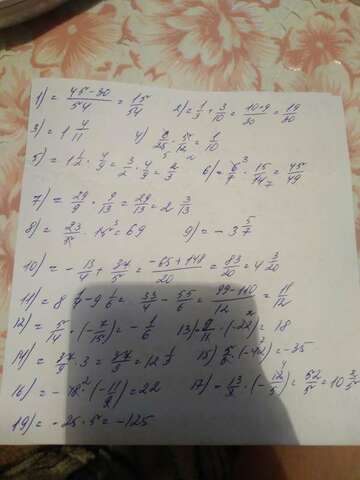 1) = 45-30/54 = 15/54 2) = 1/3 + 3/10 = 10+9/30 = 19/30
3) = 1 4/11 4) 6/25 · 5/12 = 1/10
5) = 1 1/2 · 4/9 = 3/2 · 4/9 = 2/3 6) = 6/7 · 15/14 = 45/49
7) = 29/9 · 9/13 = 29/13 = 2 3/13
8) = 23/5 · 15 = 69 9) = -3 5/7
10) = -13/4 + 37/5 = -65+148/20 = 83/20 = 4 3/20
11) = 8 1/4 - 9 1/6 = 33/4 - 55/6 = 99-110/12 = 11/12
12) = 5/14 · (-7/15) = -1/6 13) 9/11 · (-22) = 18
14) = 37/9 · 3 = 37/3 = 12 1/3 15) 5/6 · (-42) = -35
16) = -18 · (-11/9) = 22 17) = 13/3 · (-12/5) = 52/5 = 10 2/5
19) = -25 · 5 = -125